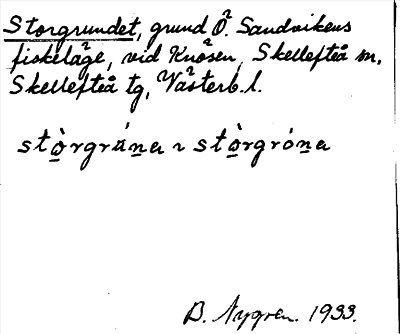 Storgrundet, grund Ö. Sandvikens
fiskeläge, vid Knösen, Skellefteå m,
Skellefteå tg, Västerb. l.
stòrgrúna ~ stòrgróna
B. Nygren. 1933.